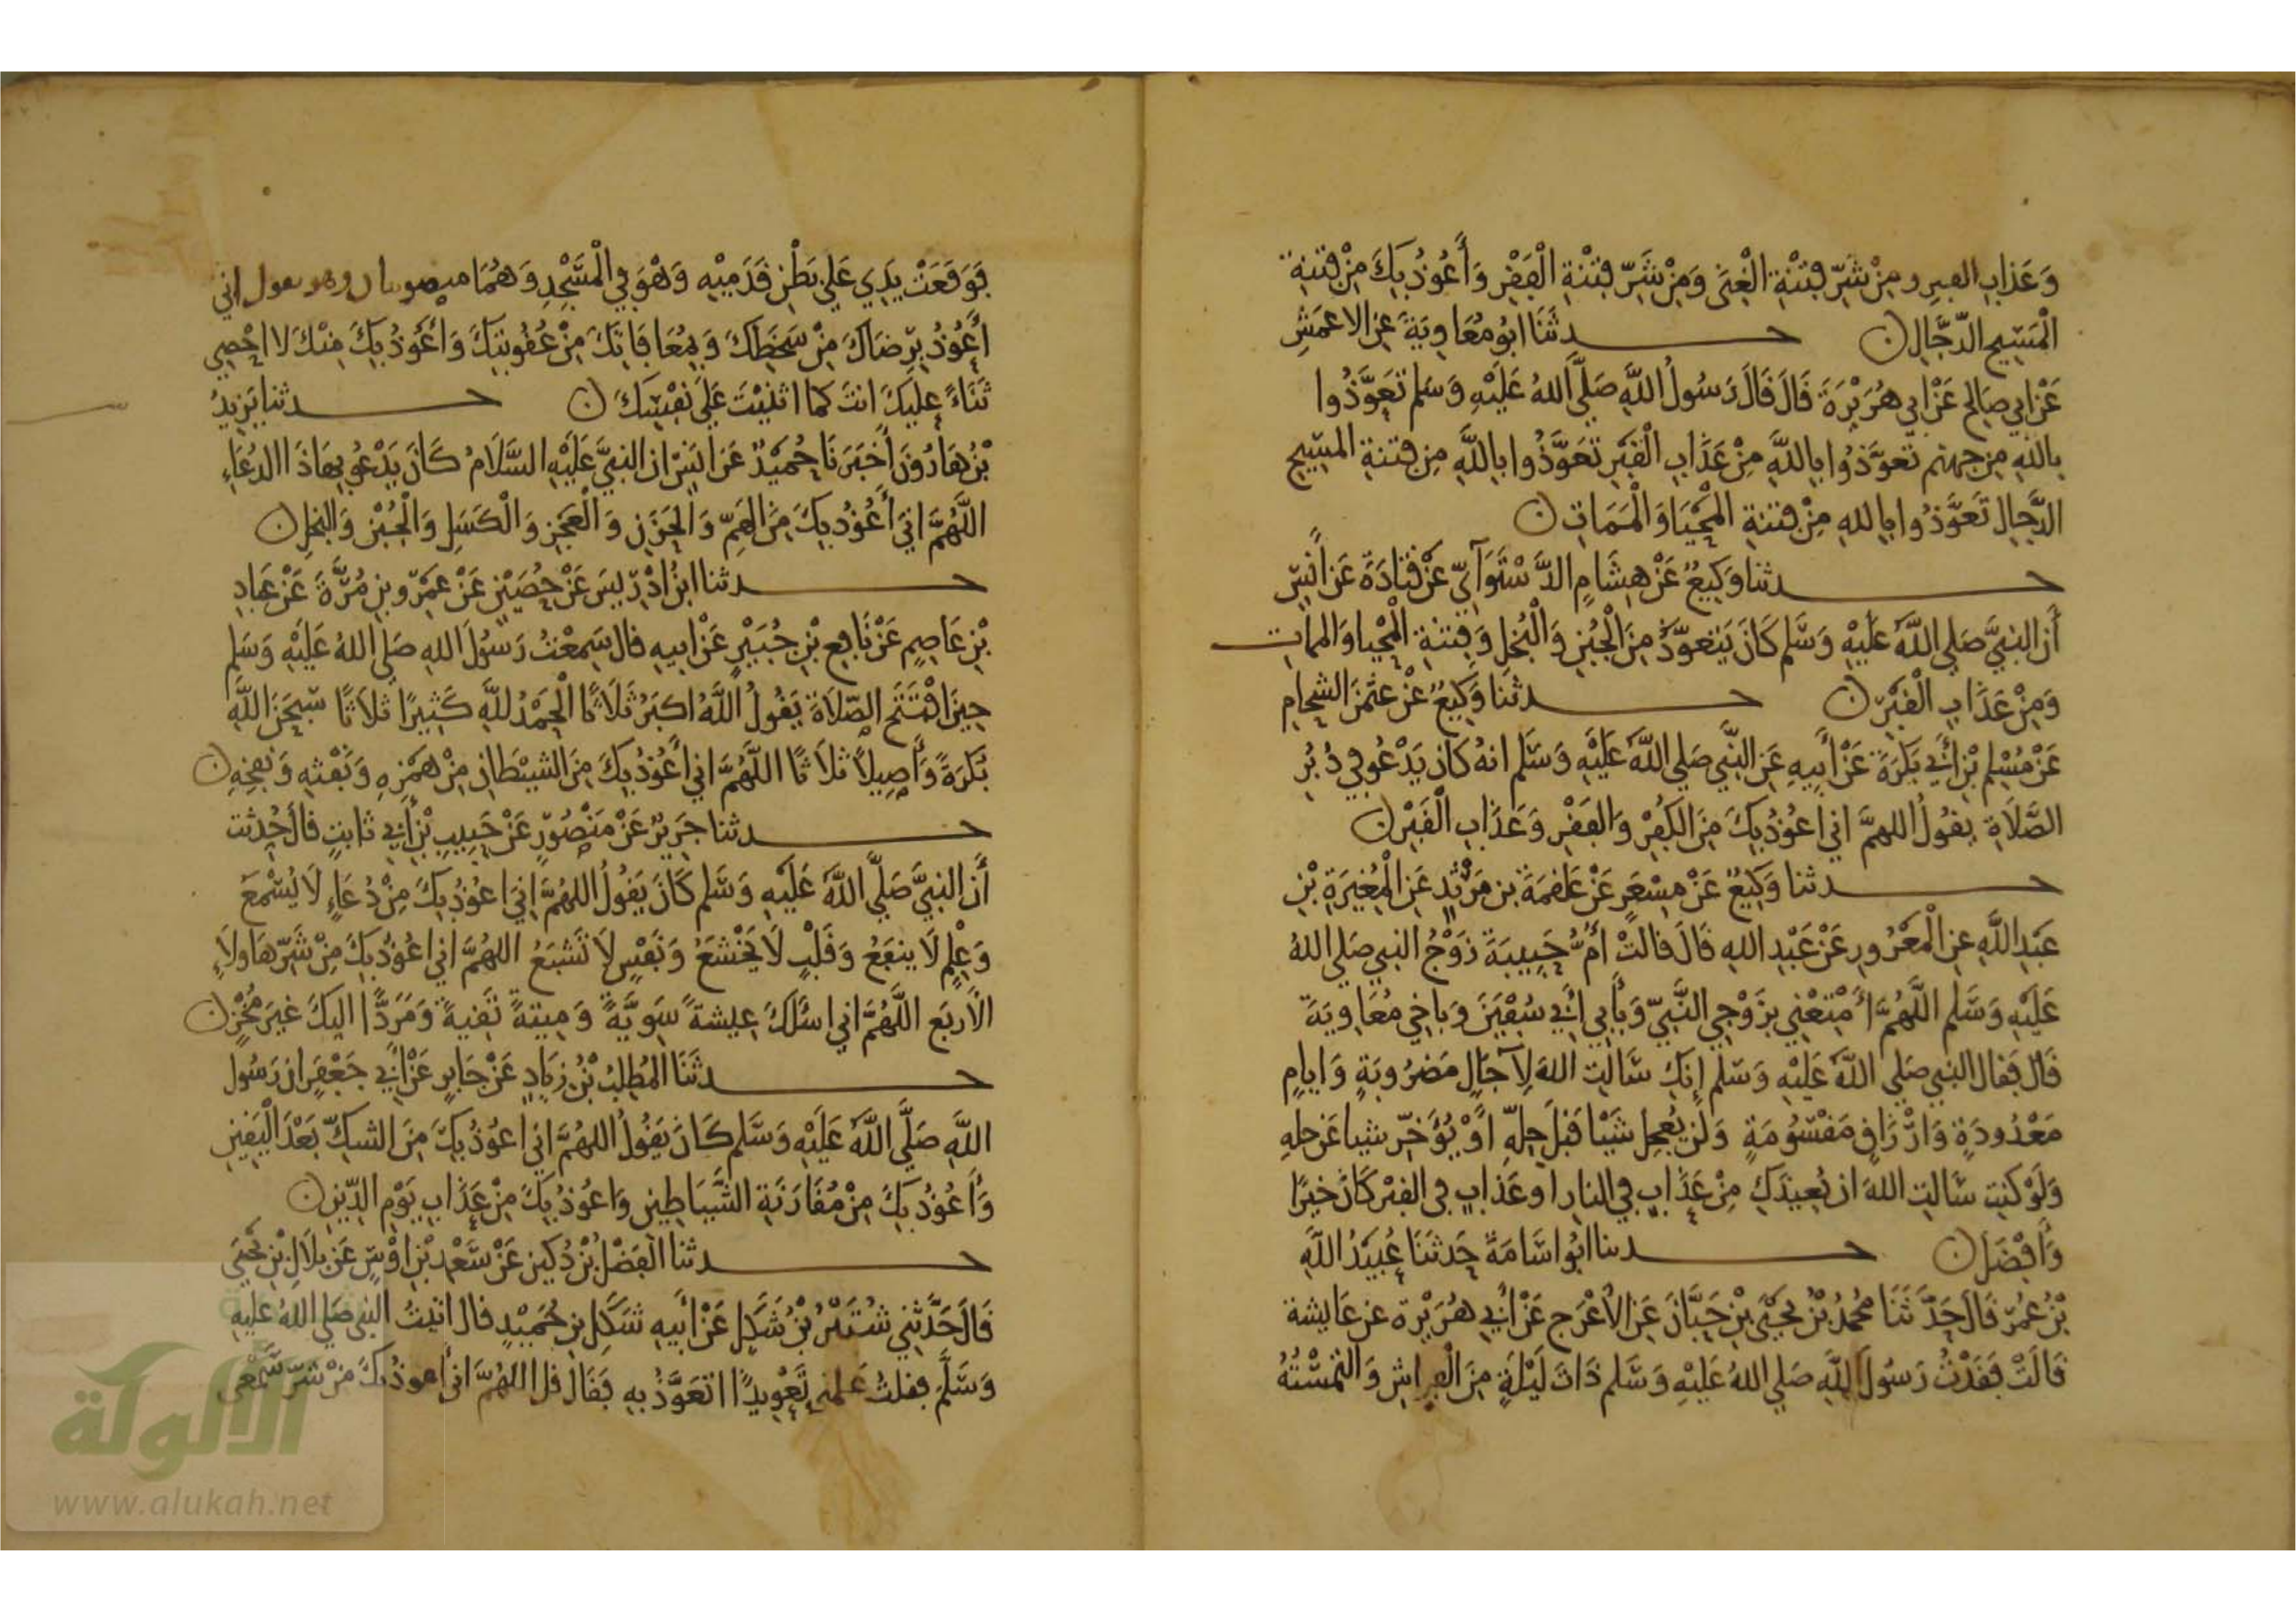 وَعَذابِ القبرِ ومِنْ شَرِّ فِتْنَةِ الْغِنَى وَمِنْ شَرِّ فِتْنَةِ الْفَقْرِ وَأَعُوذُ بِكَ مِنْ فِتنةِ
الْمَسِيحِ الدَّجَّالِ ن حدثَنَا ابُو مُعَاوِيَةَ عَنِ الاعمَشِ
عَنْ ابي صَالِحٍ عَنْ ابي هُرَيْرَةَ قَالَ قَالَ رَسُولُ اللَّهِ صَلَّى اللهُ عَلَيْهِ وَسَلم تَعَوَّذُوا
بِاللهِ مِن جهنم تعَوَّذُوا بِاللَّهِ مِنْ عَذَابِ الْقَبْرِ تَعَوَّذُوا بِاللَّهِ مِن فِتنةِ المسِيحِ
الدَّجالِ تَعَوَّذُوا باللهِ مِنْ فتنةِ الْمَحْيَا وَالْمَمَاتِ ن
حدثنا وَكِيعٌ عَنْ هِشَامٍ الدَّسْتَوَآئي عَنْ قَتَادَةَ عَن أَنَسٍ
أَن النبِيَّ صَلي اللَّهُ عَلَيْهِ وَسَّلم كَانَ يَتعوَّذُ مِنَ الْجُبْنِ وَالْبُخلِ وَفِتنَةِ الْمَحْيا وَالممات
وَمِنْ عَذَابِ الْقَبْرِ ن حدثنَا وَكِيعٌ عَنْ عثمَنَ الشحامِ
عَنْ مُسْلم بْنِ أَبِي بَكَرَةَ عَنْ أَبِيهِ عَنِ النَّبِي صَلي اللَّهُ عَلَيْهِ وَسَّلم انهُ كَانَ يَدْعُو فِي دُبُرِ
الصَّلَاةِ يقُولُ اللهمَّ اني اعُوذُ بِكَ مِنَ الكُفْرِ وَالفَقْرِ وَعَذَابِ الْقَبْرِ ن
حدثنا وَكِيعٌ عَنْ مِسْعَرٍ عَنْ عَلقمَةَ بن مَرْثَدٍ عَنِ الْمُغِيرَةِ بْنِ
عَبْدِ اللَّهِ عنِ الْمَعْرُورِ عَنْ عَبْدِ اللهِ قَالَ قالَتْ أُمُّ حَبِيبَةَ زَوْجُ النبي صَلي اللهُ
عَلَيْهِ وَسَّلم اللَّهُمَّ أَمْتِعْنِي بِزَوْجِي النَّبِيِّ وَبِأَبي أَبِي سُفْيَنَ وَبِاخي مُعَاوِيَةَ
قَالَ فَقال النبي صَلي اللَّهُ عَلَيْهِ وَسَلَّم إِنكِ سَّالْتِ اللهَ لِآجَالٍ مَضرُوبَةٍ وَايامٍ
مَعْدُودَةٍ وَارْزَاقٍ مَقْسُومَةٍ وَلَن يُعجِلَ شَيْا قَبْلَ حِلِّهِ أَوْ يُؤَخِّرَ شيا عَن حلِهِ
وَلَوْ كنتِ سَّالتِ اللهَ ان يُعِيذَكِ مِنْ عَذَابٍ فِي النارِ او عَذَابٍ فِي القبْرِ كَانَ خيرًا
وَأَفضَلَ ن حدثنا ابُو اسَامَةَ حَدثنَا عُبَيْدُ اللَّهِ
بْنُ عُمَرَ قَالَ حَدَّثَنَا مُحمَّدُ بْنُ يَحْيَى بْنِ حَبَّانَ عَنِ الأَعْرَجِ عَنْ أَبِي هُرَيْرَة عن عَايشة
قَالَتْ فَقَدْتُ رَسُولَ اللَّهِ صَلي اللهُ عَلَيْهِ وَسَّلم ذَاتَ لَيْلَةٍ مِنَ الْفِراشِ وَالتَمَسْتُهُ
فَوَقَعَتْ يَدِي عَلي بَطْنِ قَدَمَيْهِ وَهْوَ فِي الْمَسْجِدِ وَهُمَا منصوبتان وهو يقول اني
أَعُوذُ بِرِضَاكَ مِنْ سَخَطِكَ وَبِمُعَافَاتِكَ مِنْ عُقُوبَتِكَ وَأَعُوذُ بِكَ مِنْكَ لا احْصِي
ثَنَاءً عليكَ انتَ كما اثنَيْتَ عَلَى نَفْسِكَ ن حدثنا يَزِيدُ
بْنُ هَارُونَ أَخْبَرَنَا حُمَيْدٌ عَنْ انسٍ ان النبيَّ عَلَيْهِ السَّلَامُ كَانَ يَدْعُو بِهَاذَا الدُعَاءِ
اللَّهُمَّ اني أَعُوذُ بِكَ مِنَ الْهَمِّ وَالحَزَنِ وَالْعَجْزِ وَالْكَسَلِ وَالْجُبْنِ وَالبخلِ ن
حدثنا ابنُ ادْرِيسَ عَنْ حُصَيْنٍ عَنْ عَمْرٍو بنِ مُرَّةَ عَنْ عَبادِ
بْنِ عَاصِمٍ عَنْ نَافِعِ بْنِ جُبَيْرٍ عَنْ ابيهِ قال سَمِعْتُ رَسُولَ اللهِ صَلي اللهُ عَلَيْهِ وَسَلم
حِينَ افْتَتَحَ الصَّلَاةَ يَقُولُ اللَّهُ اكبَرُ ثَلَاثًا الْحَمْدُ للَّهِ كَثِيرًا ثلَاثًا سُبحَنَ اللَّهِ
بُكرَةً وَأَصِيلًا ثلَاثًا اللَّهُمَّ اني أَعُوذُ بِكَ مِنَ الشيْطَانِ مِنْ هَمْزِهِ وَنَفْثِهِ وَنَفخِهِ ن
حدثنا جَرِيرٌ عَنْ مَنْصُورٍ عَنْ حَبِيبِ بْنِ أَبِي ثَابِتٍ قالَ حُدثت
أَن النبيَّ صَلَّى اللَّهُ عَلَيْهِ وَسَّلم كَانَ يَقُولُ اللهُمَّ إِنِي اعُوذُ بِكَ مِنْ دُعَاءٍ لَا يُسْمَعُ
وَعِلْمٍ لَا ينفَعُ وَقَلْبٍ لَا يَخْشَعُ وَنَفْسٍ لَا تَشبَعُ اللهُمَّ اني اعُوذُ بِكَ مِنْ شَرِّ هَاولَاءِ
الأَربَعِ اللَّهُمَّ اني اسَئَلُكَ عِيشةً سَوِيَّةً وَمِيتةً تَقِيةً وَمَرَدًّا اليكَ غيرَ مُخْزٍ ن
حدثَنَا المُطلِبُ بْنُ زِيَادٍ عَنْ جَابِرٍ عَنْ أَبِي جَعْفَرٍ ان رَسُول
اللَّهِ صَلَّى اللَّهُ عَلَيْهِ وَسَّلم كَانَ يَقُولُ اللهُمَّ اني اعُوذُ بِكَ مِنَ الشكِّ بَعْدَ الْيَقِينِ
وَأَعُوذُ بِكَ مِنْ مُقَارَنَةِ الشَّيَاطِينِ وَاعُوذُ بِكَ مِنْ عَذَابِ يَوْمِ الدِّينِ ن
حدثنا الفَضْلُ بْنُ دُكَينٍ عَنْ سَعْدِ بْنِ اوْسٍ عَن بِلَالِ بْنِ يَحْيَى
قَالَ حَدَّثَنِي شُتَيْرُ بْنُ شَكَلٍ عَنْ أَبِيهِ شَكَلِ بنِ حُمَيْدٍ قال اتيتُ النبي صَلي اللهُ عليهِ
وَسَّلَّم فقلتُ عَلمْنِي تَعْوِيذًا اتعَوَّذُ بِهِ فَقَالَ قل اللهُمَّ اني أعوذُ بكَ مِنْ شَرِّ سَمْعِي
الألوكة
www.alukah.net